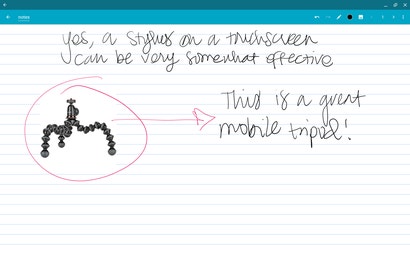 notes
yes, a stylus on a touchscreen
can be very somewhat effective
This is a great
mobile tripod!